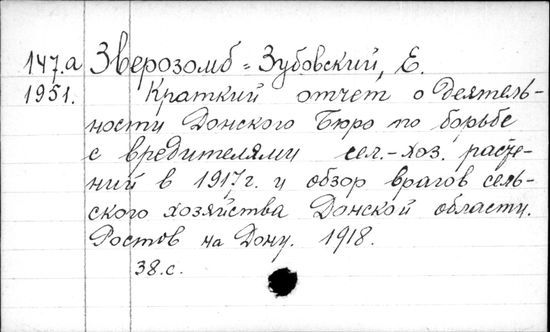 147.а Зверозомб-Зубовский, Е.
1951. Краткий отчет о деятель-
ности Донского Бюро по борьбе
с вредителями сел.-хоз. расте-
ний в 1917 г. и обзор врагов сель-
ского хозяйства Донской области.
Ростов на Дону. 1918.
38 с.